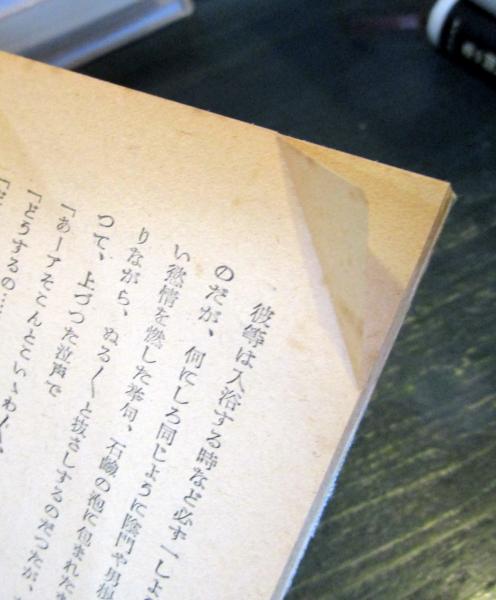 彼等は入浴する時など必ず一しよ
のだが、何にしろ同じように陰門や男根
い慾情を燃した挙句、石鹼の泡に包まれた
りながら、ぬる〳〵と抜さしするのだつたが、
つて、上づつた泣声で
「あーァそこんとこいゝわ
「どうするの…